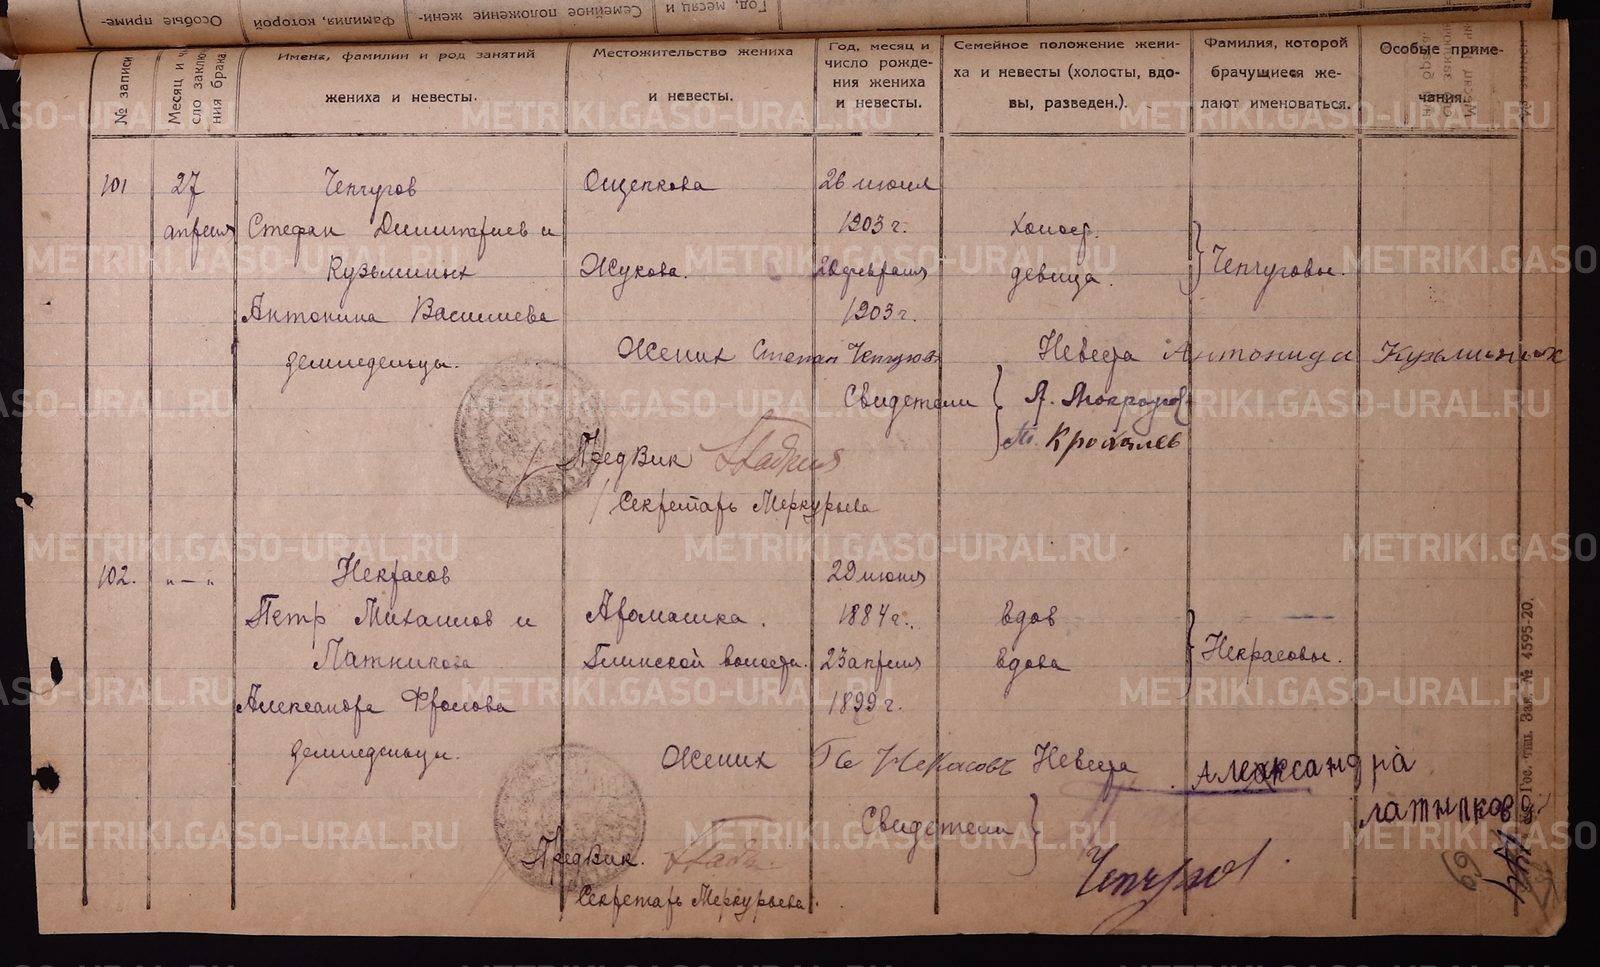 № записи
Месяц и чи-
сло заклю-
ния брака.
Имена, фамилии и род занятий
жениха и невесты.
Местожительство жениха
и невесты.
Год, месяц и
число рожде-
ния жениха
и невесты.
Семейное положение жени-
ха и невесты (холосты, вдо-
вы, разведен.).
Фамилия, которой
брачущиеся же-
лают именоваться.
Особые приме-
чания.
101 27 Чепчугов Ощепкова 26 июля
апреля Стефан Димитриев и 1903 г. холост.
Кузьминых Жукова. февраля девица. Чепчуговы.
Антонина Васильева 1903 г.
земледельцы. Жених Степан Чепчугов Невеста Антонида Кузьминых
Свидетели
Крохалев
ПредВик
Секретарь Меркурьева
102. „—„ Некрасов 29 июня
Петр Михаилов и Аромашка. 1884 г. вдов
Латникова Глинской волости. 23 апреля вдова Некрасовы.
Александра Фролова 1899 г.
земледельцы. Жених Пе Некасовъ Невеста Александра
Латникова
Свидетели
ПредВик. Чепчугов
Секретарь Меркурьева.
69
Гос. тип. Зак. № 4595-20.
METRIKI.GASO-URAL.RU